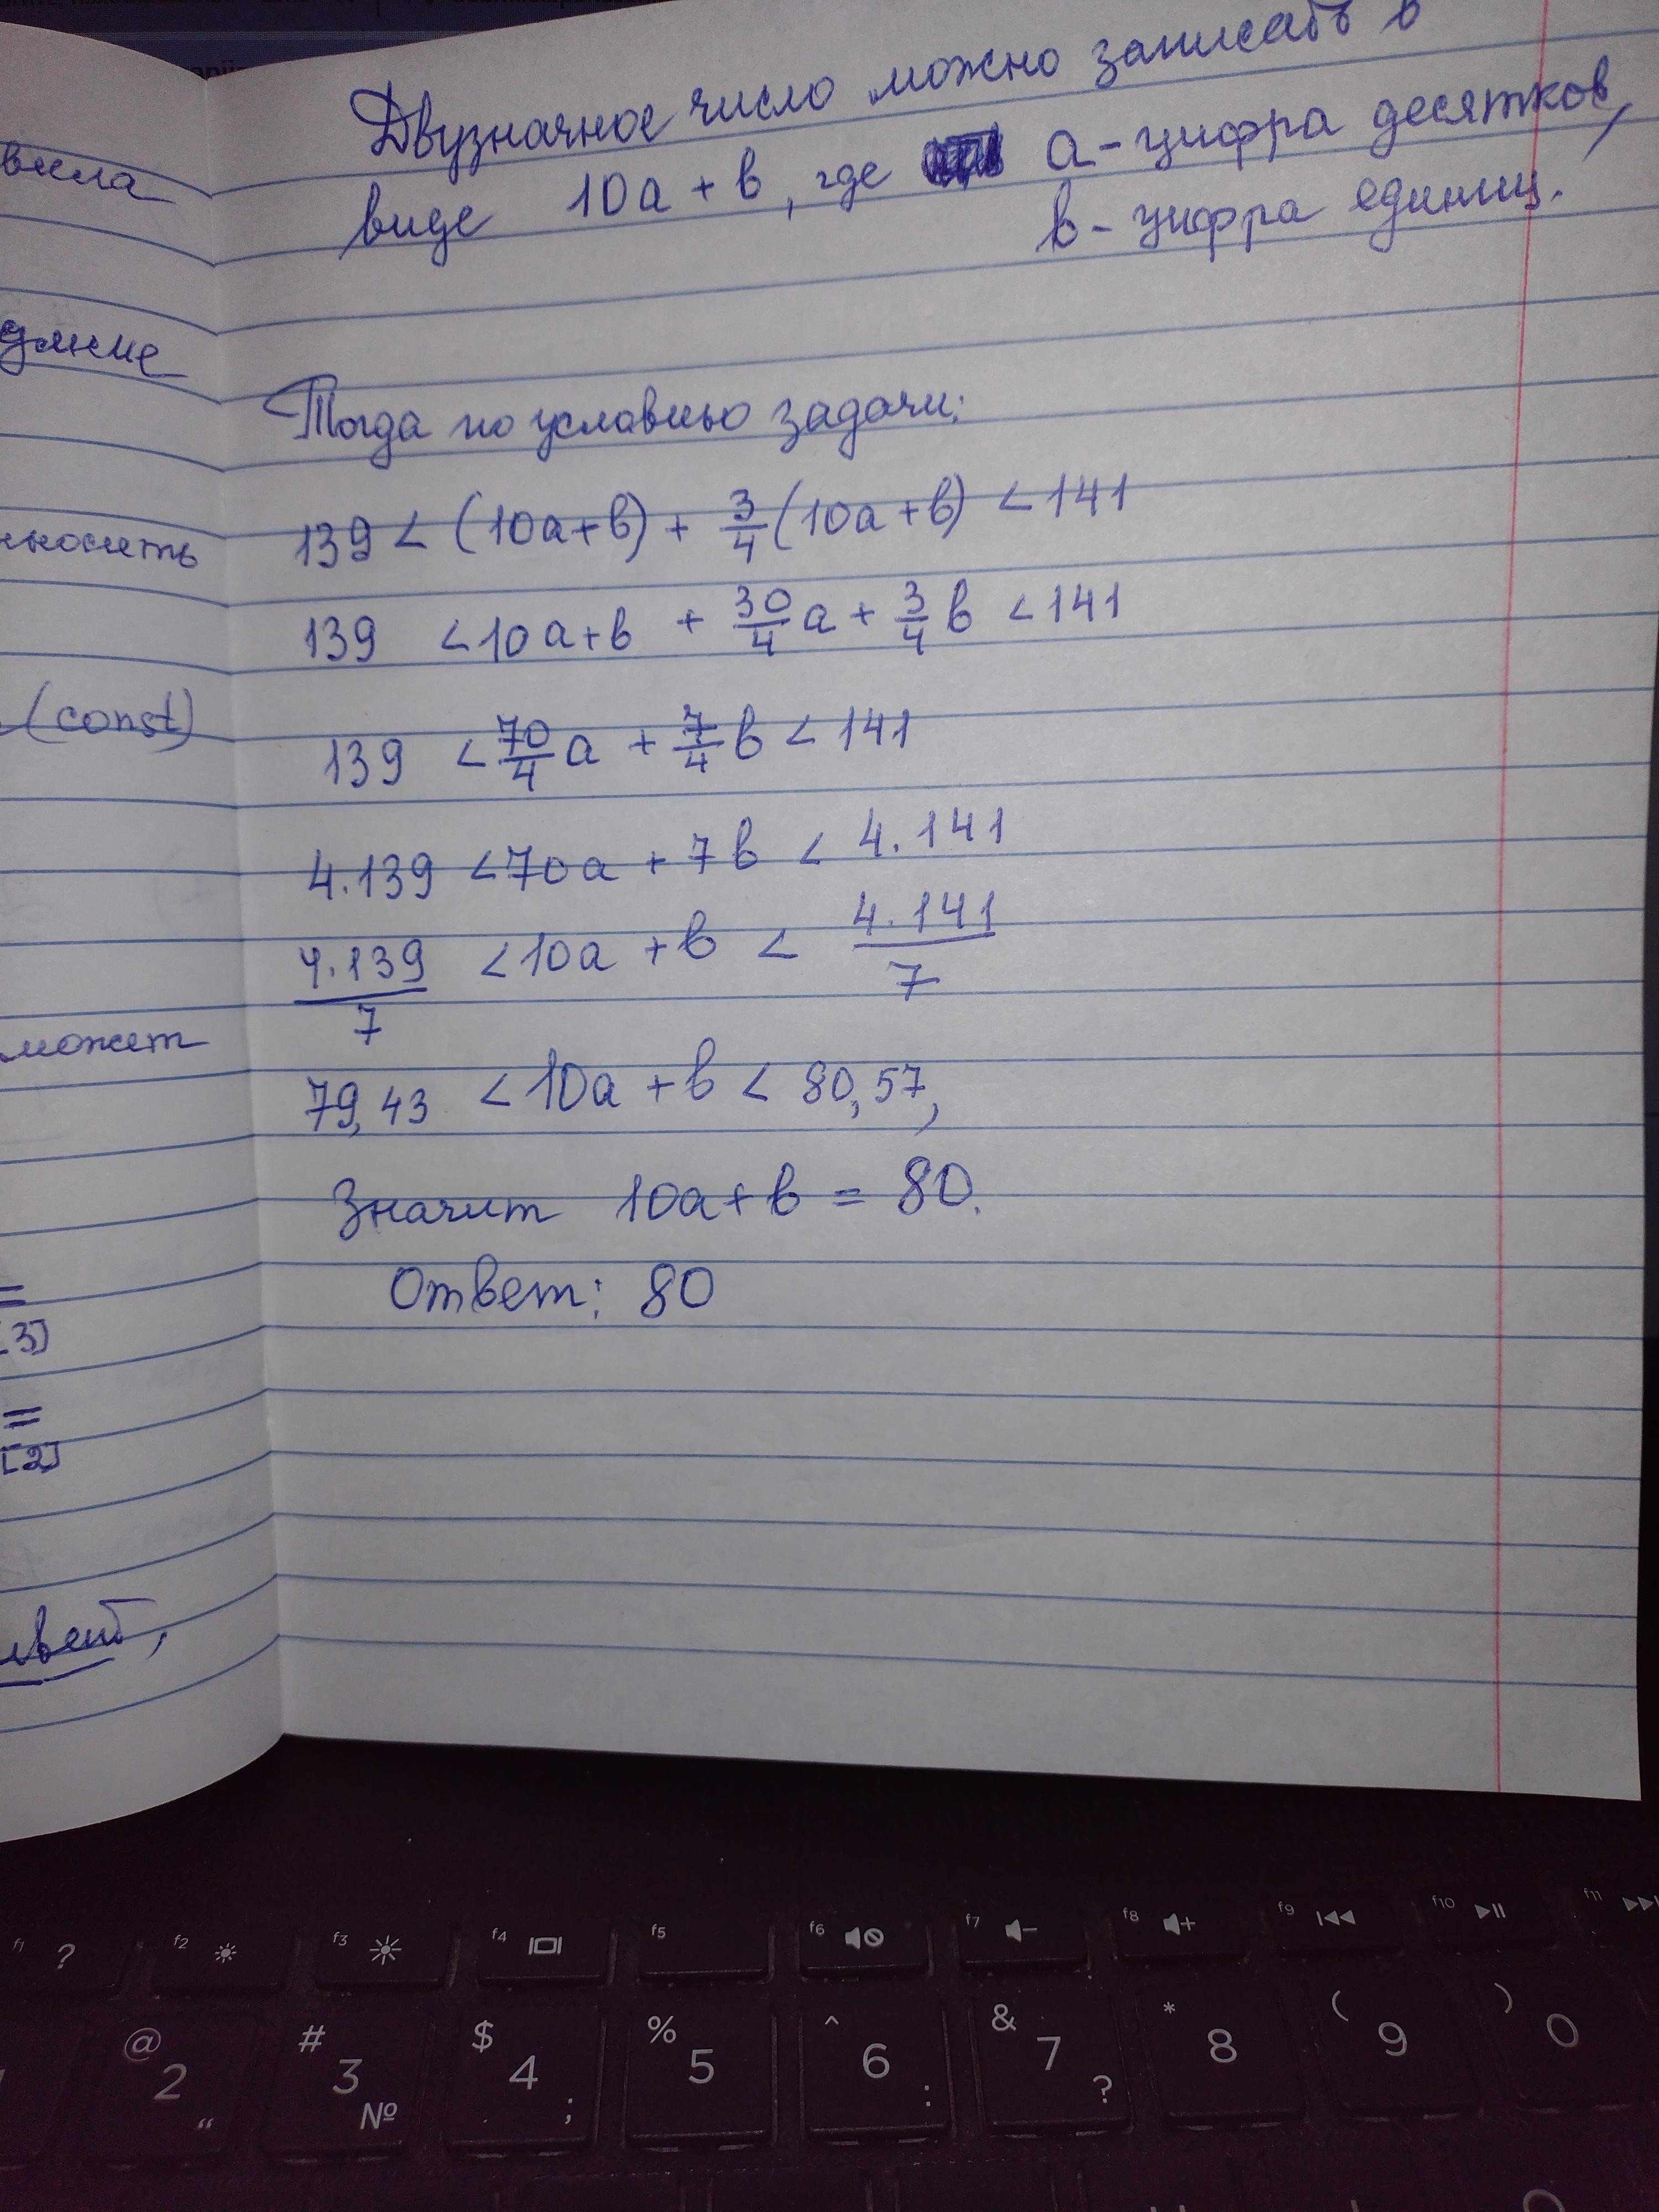 Двузначное число можно записать в
виде 10a + b, где a - цифра десятков,
b - цифра единиц.
Тогда по условию задачи:
139 < (10a+b) + 3/4 (10a+b) < 141
139 < 10a+b + 30/4 a + 3/4 b < 141
139 < 70/4 a + 7/4 b < 141
4.139 < 70a + 7b < 4.141
4.139/7 < 10a + b < 4.141/7
79,43 < 10a + b < 80,57,
Значит 10a+b = 80.
Ответ: 80
(const)
может
=
3]
=
[2]
f1 ?
f2
f3
f4
f5
f6
f7
f8
f9
f10
f11
@ 2 “
# 3 №
$ 4 ;
% 5
^ 6 :
& 7 ?
* 8
( 9
) 0